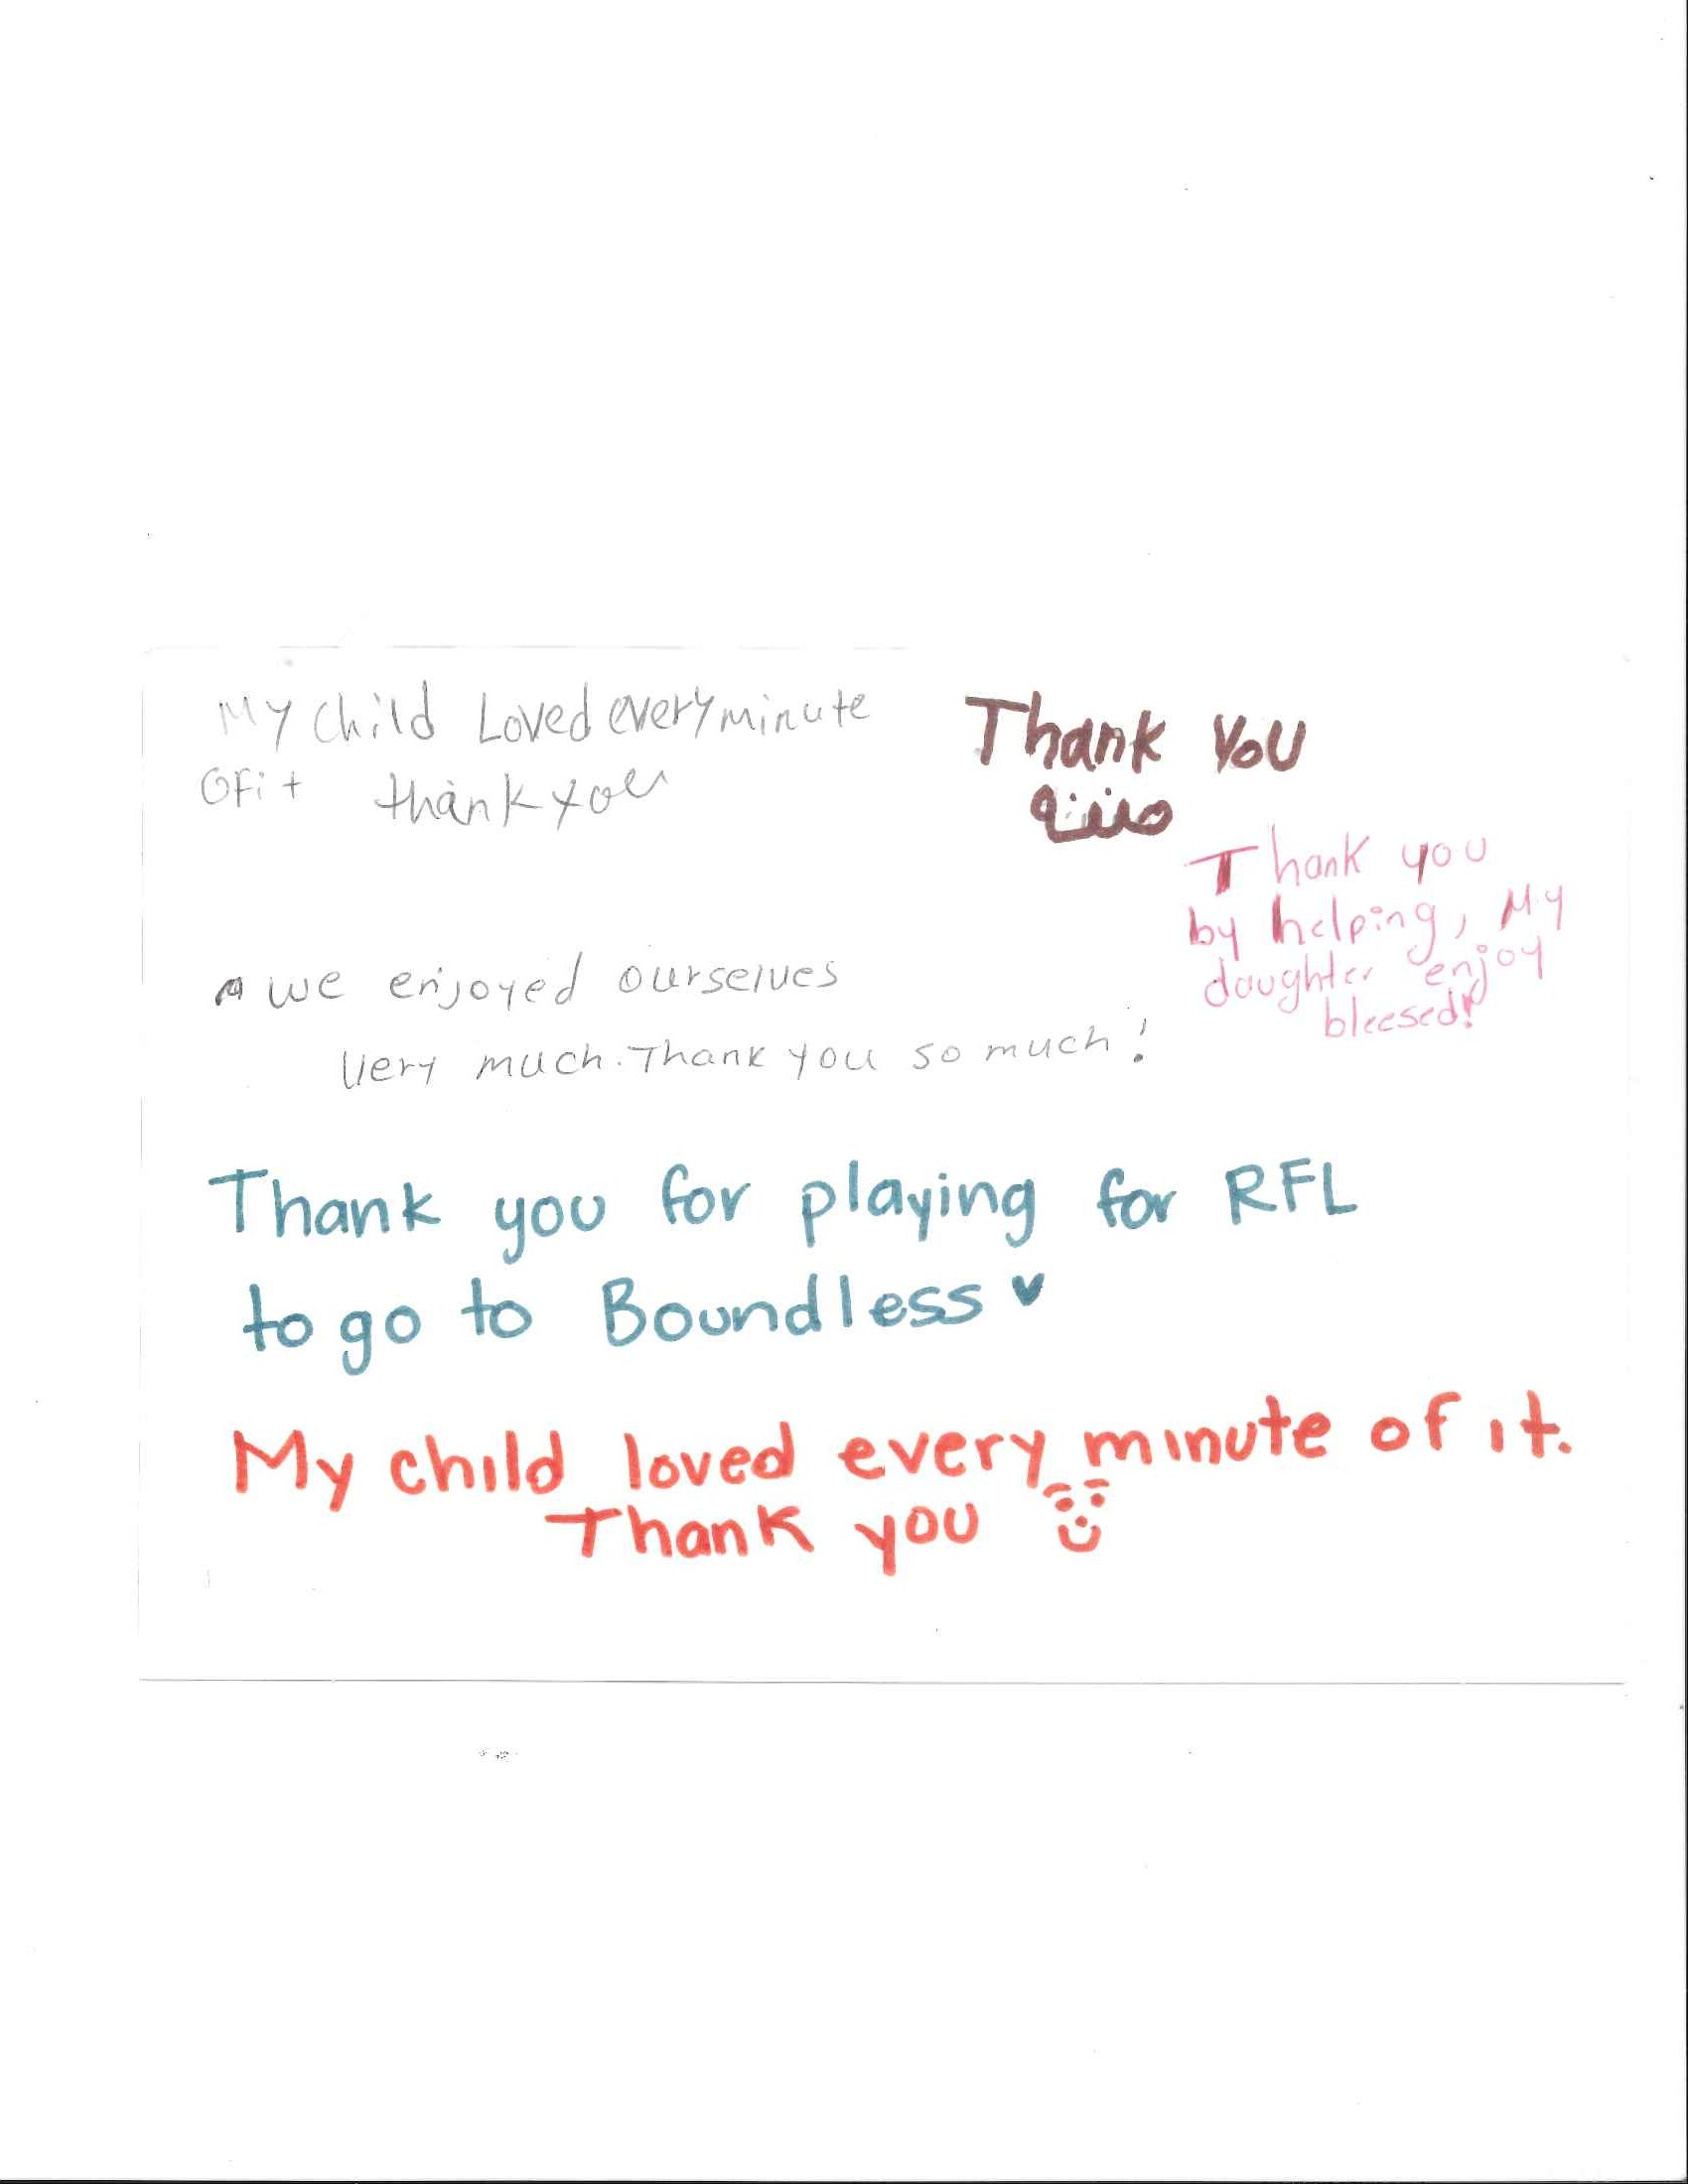 My child Loved every minute
OF it thank you
Thank You
Thank you
by helping, My
daughter enjoy
bleesed!
we enjoyed ourselves
Very much. Thank you so much!
Thank you for playing for RFL
to go to Boundless ♥
My child loved every minute of it.
Thank you